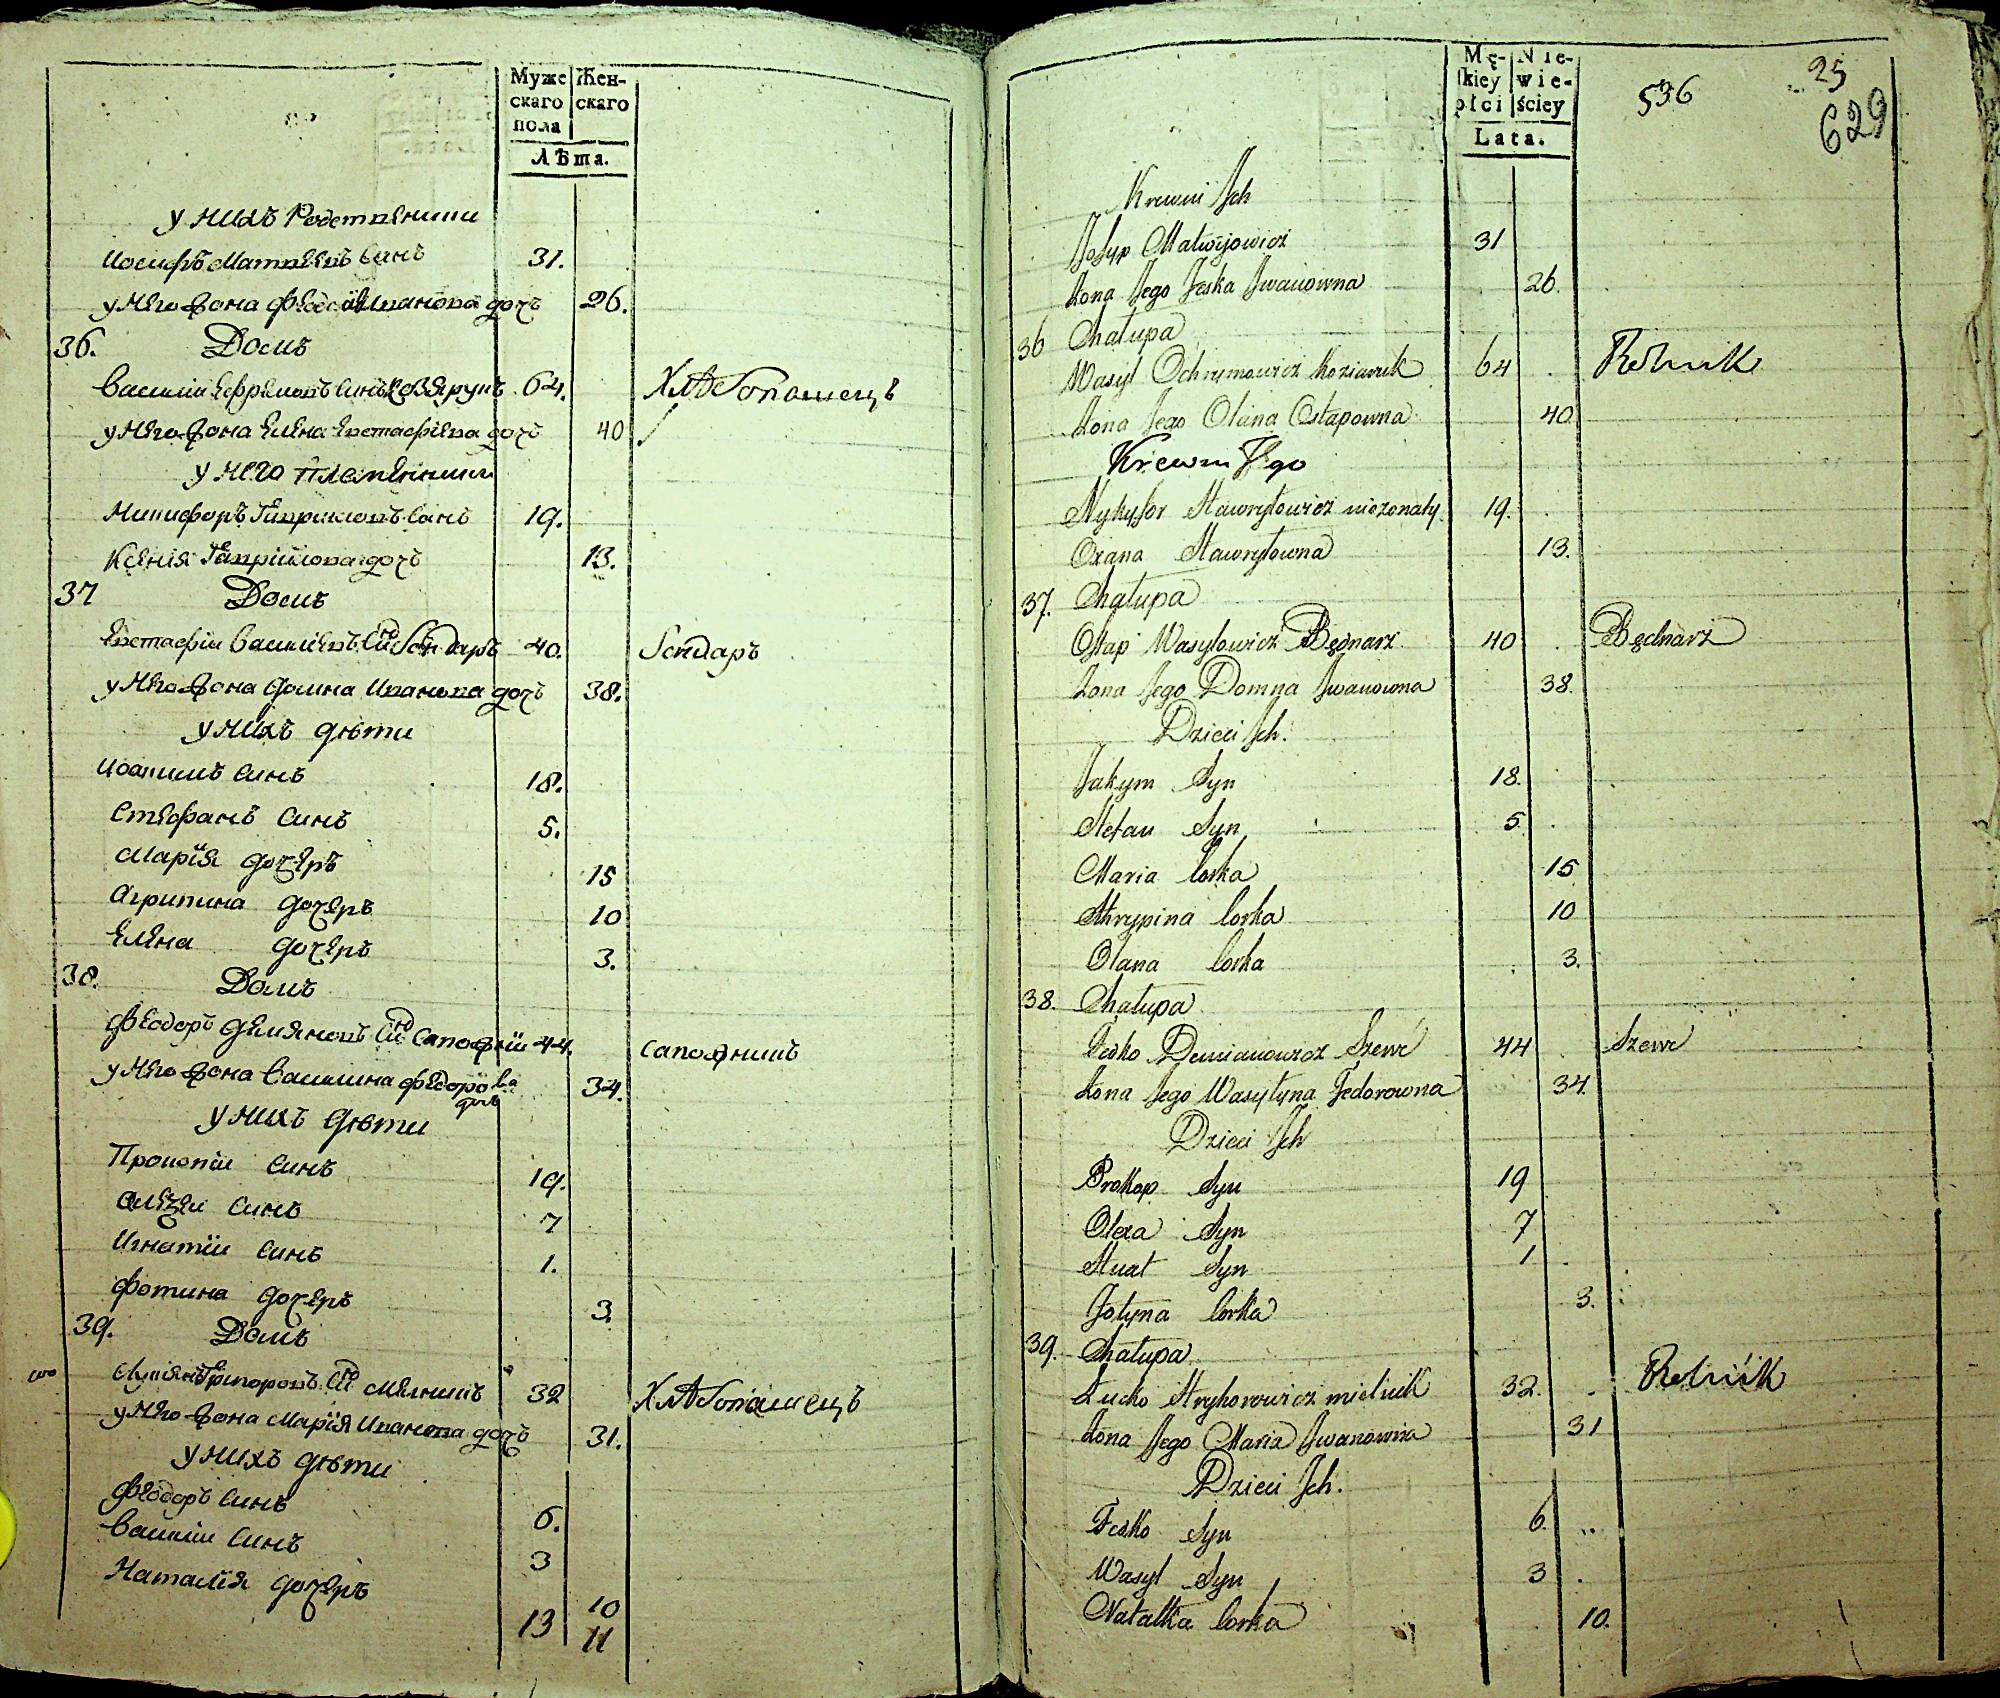 Муже
скаго
пола
Жен-
скаго
Лѣта.
у нихъ Родственики
Иосифъ Матвеевъ Синъ 31.
у Него Жона Феодосия Иванова дочъ 26.
36. Домъ
Василій Ефремовъ Синъ Козярукъ 64. Хлѣбопашецъ
у Него Жона Елена Евстафіева дочъ 40
у Него Племяники
Никифоръ Гавриловъ Синъ 19.
Ксенія Гаврилова дочъ 13.
37 Домъ
Евстафій Василіевъ Синъ Бондаръ 40. Бондаръ
у Него Жона Домна Иванова дочъ 38.
у Нихъ дѣти
Иоакимъ Синъ 18.
Стефанъ Синъ 5.
Марія дочеръ 15
Агрипина дочеръ 10
Елена дочеръ 3.
38. Домъ
Феодоръ Демяновъ Синъ Сапожній 44. Сапожникъ
у Него Жона Василина Федорова дочъ 34.
у Нихъ дѣти
Прокопій Синъ 19.
Алеѯей Синъ 7
Игнатій Синъ 1.
Фотина дочеръ 3.
39. Домъ
Лукіянъ Григоровъ Синъ Мелникъ 32 Хлѣбопашецъ
у Него Жона Марія Иванова дочъ 31.
у Нихъ дѣти
Феодоръ Синъ 6.
Василій Синъ 3
Наталія дочеръ 10
13 11
Mę-
skiey
płci
Nie-
wie-
ściey
Lata.
536
25
629
Krewni Jch
Josyp Matwijowicz 31
Żona Jego Feska Jwanowna 26.
36 Chałupa
Wasyl Ochrymowicz Koziaruk 64 Rolnik
Żona Jego Olana Ostapowna 40
Krewni Jego
Nykyfor Hawryłowicz nieżonaty 19.
Oxana Hawryłowna 13.
37. Chałupa
Ostap Wasylowicz Będnarz 40 Będnarz
Żona Jego Domna Jwanowna 38.
Dzieci Jch.
Jakym Syn 18.
Stefan Syn 5
Maria Corka 15
Ahrypina Corka 10
Olana Corka 3.
38. Chałupa
Fedko Demianowicz Szewc 44 Szewc
Żona Jego Wasyłyna Fedorowna 34.
Dzieci Jch
Prokop Syn 19
Olexa Syn 7
Hnat Syn 1
Fotyna Corka 3.
39. Chałupa
Łucko Hryhorowicz mielnik 32. Rolnik
Żona Jego Maria Jwanowna 31
Dzieci Jch.
Fedko Syn 6.
Wasyl Syn 3
Natalka Corka 10.